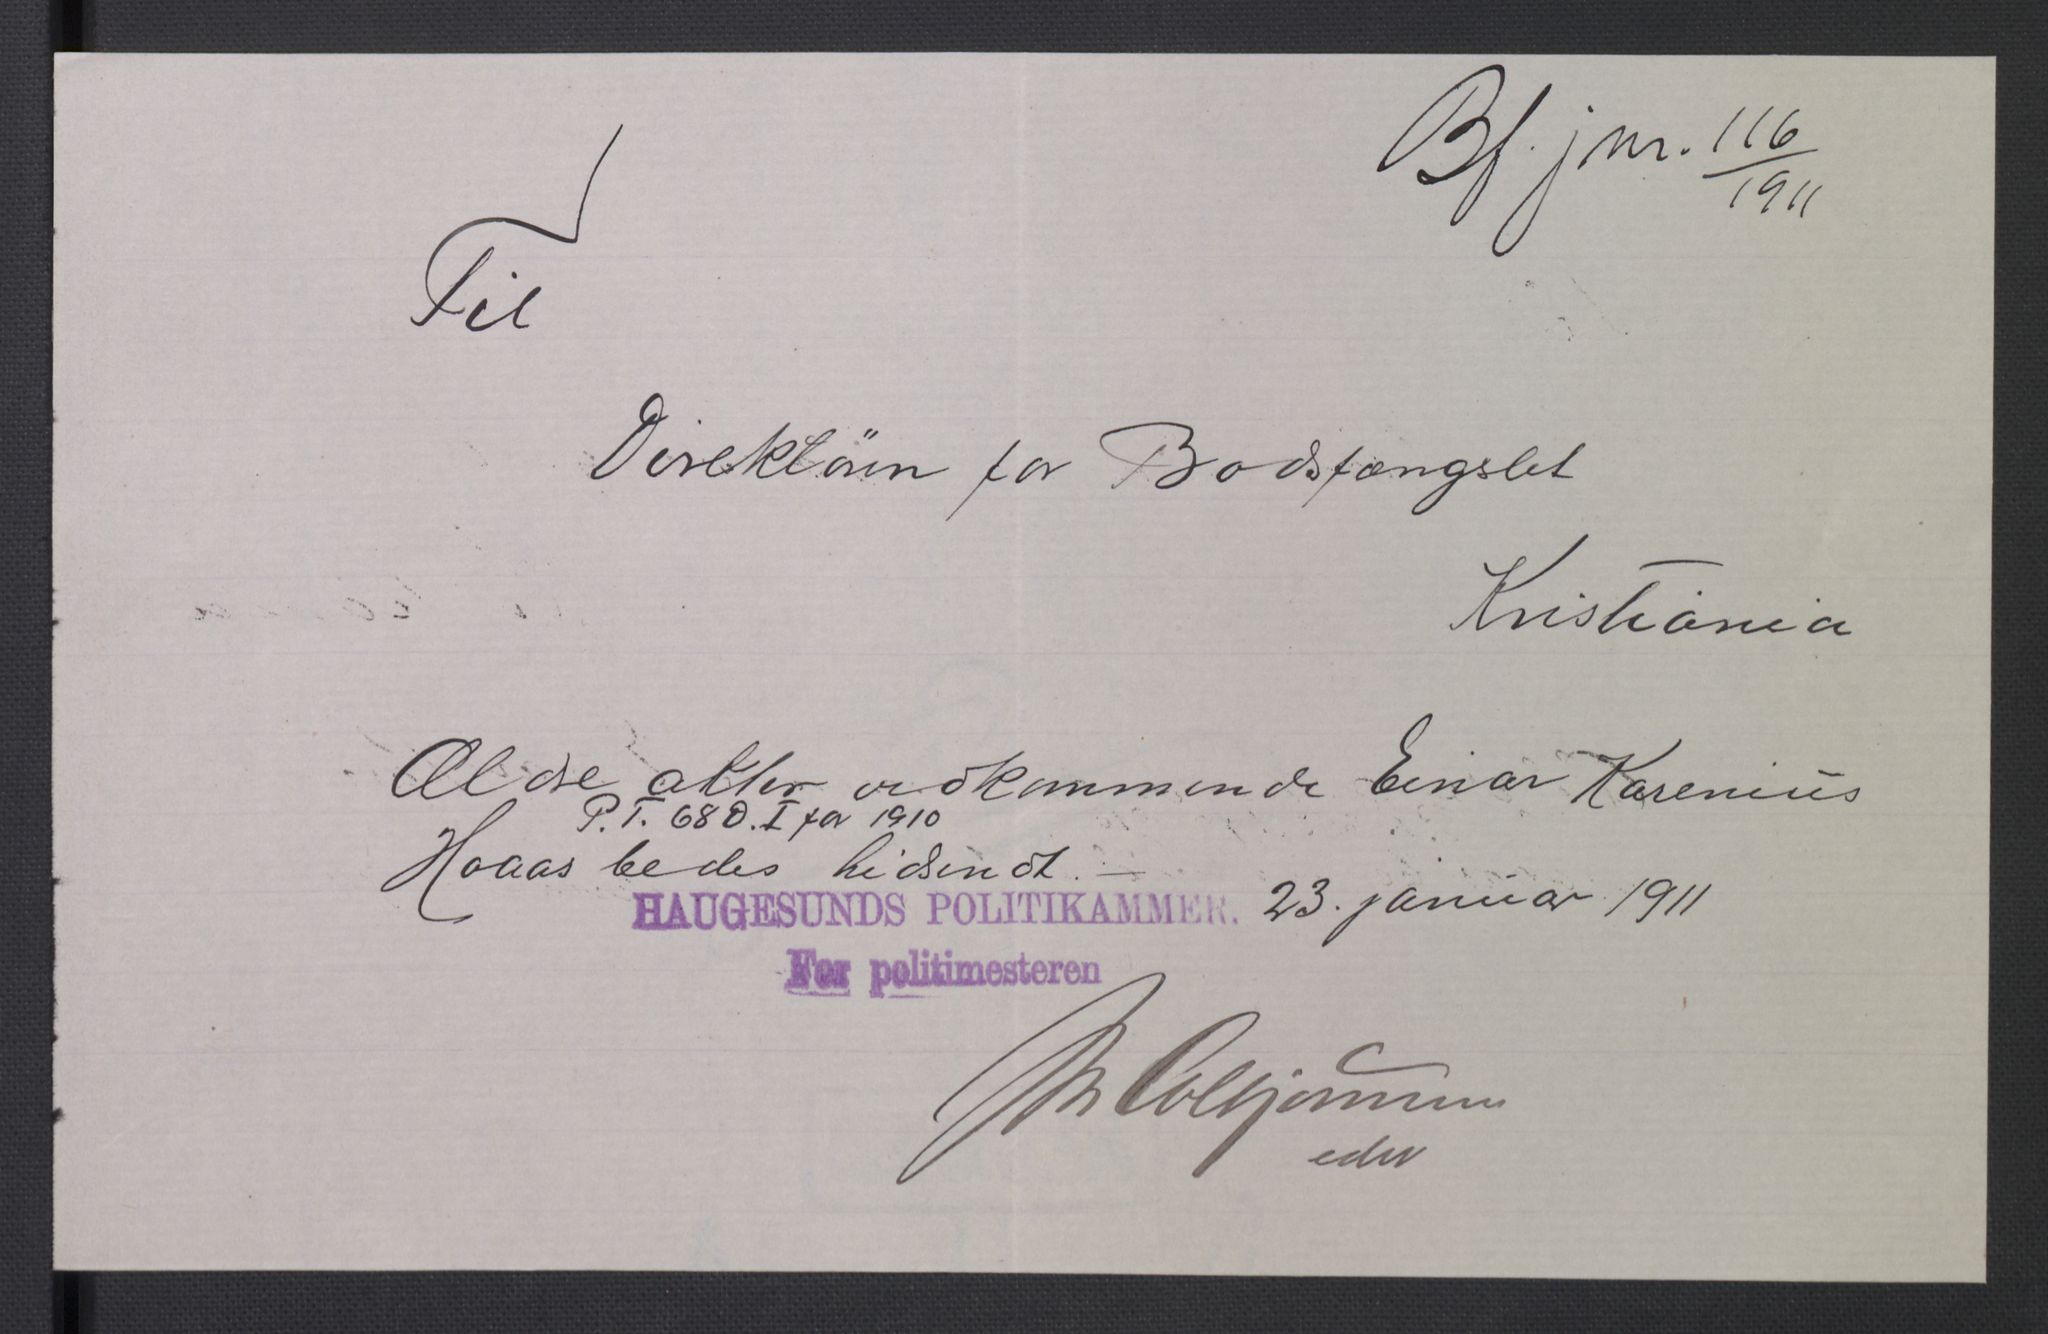 Bf. jnr. 116/1911
Til
Direktören for Bodsfængslet
Kristiania
Ældre akter vedkommende Einar Karenius
P.T. 68 D. I for 1910
Haaas bedes hidsendt. —
HAUGESUNDS POLITIKAMMER. 23. januar 1911
For politimesteren